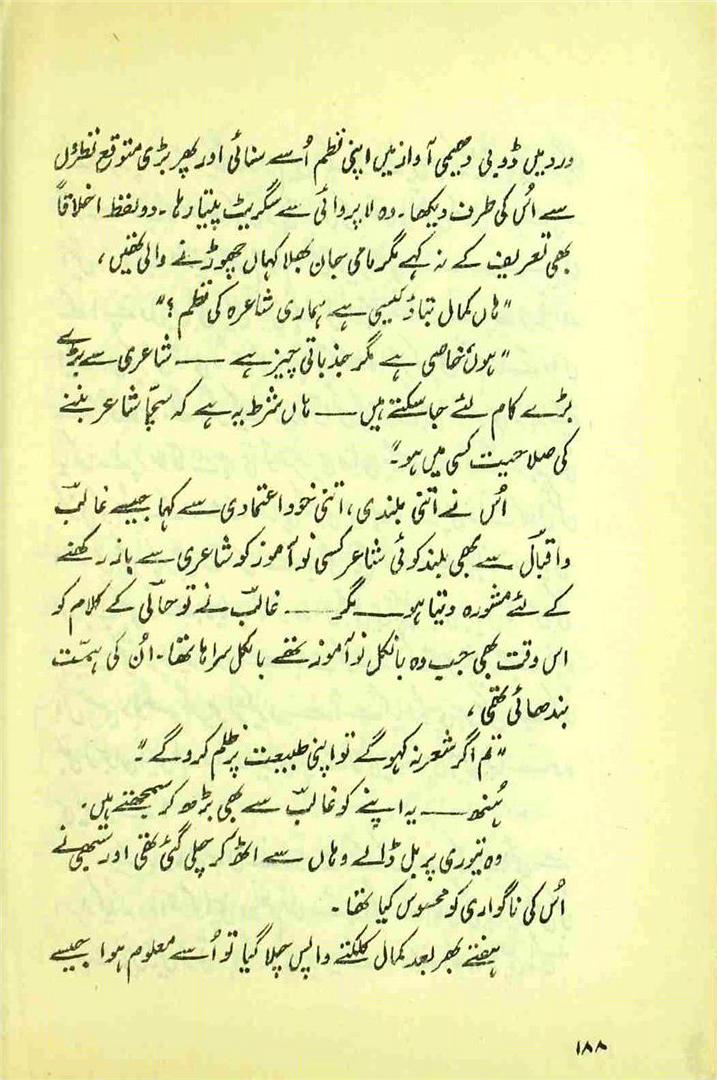 درد میں ڈوبی دھیمی آواز میں اپنی نظم اُسے سنائی اور پھر بڑی متوقع نظروں
سے اُس کی طرف دیکھا۔ وہ لاپروائی سے سگریٹ پیتا رہا۔ دو لفظ اخلاقاً
بھی تعریف کے نہ کہے مگر مامی جان بھلا کہاں چھوڑنے والی تھیں،
"ہاں کمال بتاؤ کیسی ہے ہماری شاعرہ کی نظم؟"
"ہوں خاصی ہے مگر جذباتی چیز ہے ـــ شاعری سے بڑے
بڑے کام لئے جا سکتے ہیں ـــ ہاں شرط یہ ہے کہ سچّا شاعر بننے
کی صلاحیت کسی میں ہو۔"
اُس نے اتنی بلندی، اتنی خود اعتمادی سے کہا جیسے غالبؔ
و اقبالؔ سے بھی بلند کوئی شاعر کسی نو آموز کو شاعری سے باز رکھنے
کے لئے مشورہ دیتا ہو ـــ مگر ـــ غالبؔ نے تو حالیؔ کے کلام کو
اس وقت بھی جب وہ بالکل نو آموز تھے بالکل سراہا تھا۔ اُن کی ہمّت
بندھائی تھی،
"تم اگر شعر نہ کہو گے تو اپنی طبیعت پر ظلم کرو گے۔"
ہُنھ ـــ یہ اپنے کو غالبؔ سے بھی بڑھ کر سمجھتے ہیں۔
وہ تیوری پر بل ڈالے وہاں سے اٹھ کر چلی گئی تھی اور سبھی نے
اُس کی ناگواری کو محسوس کیا تھا۔
ہفتے بھر بعد کمال کلکتے واپس چلا گیا تو اُسے معلوم ہوا جیسے
۱۸۸